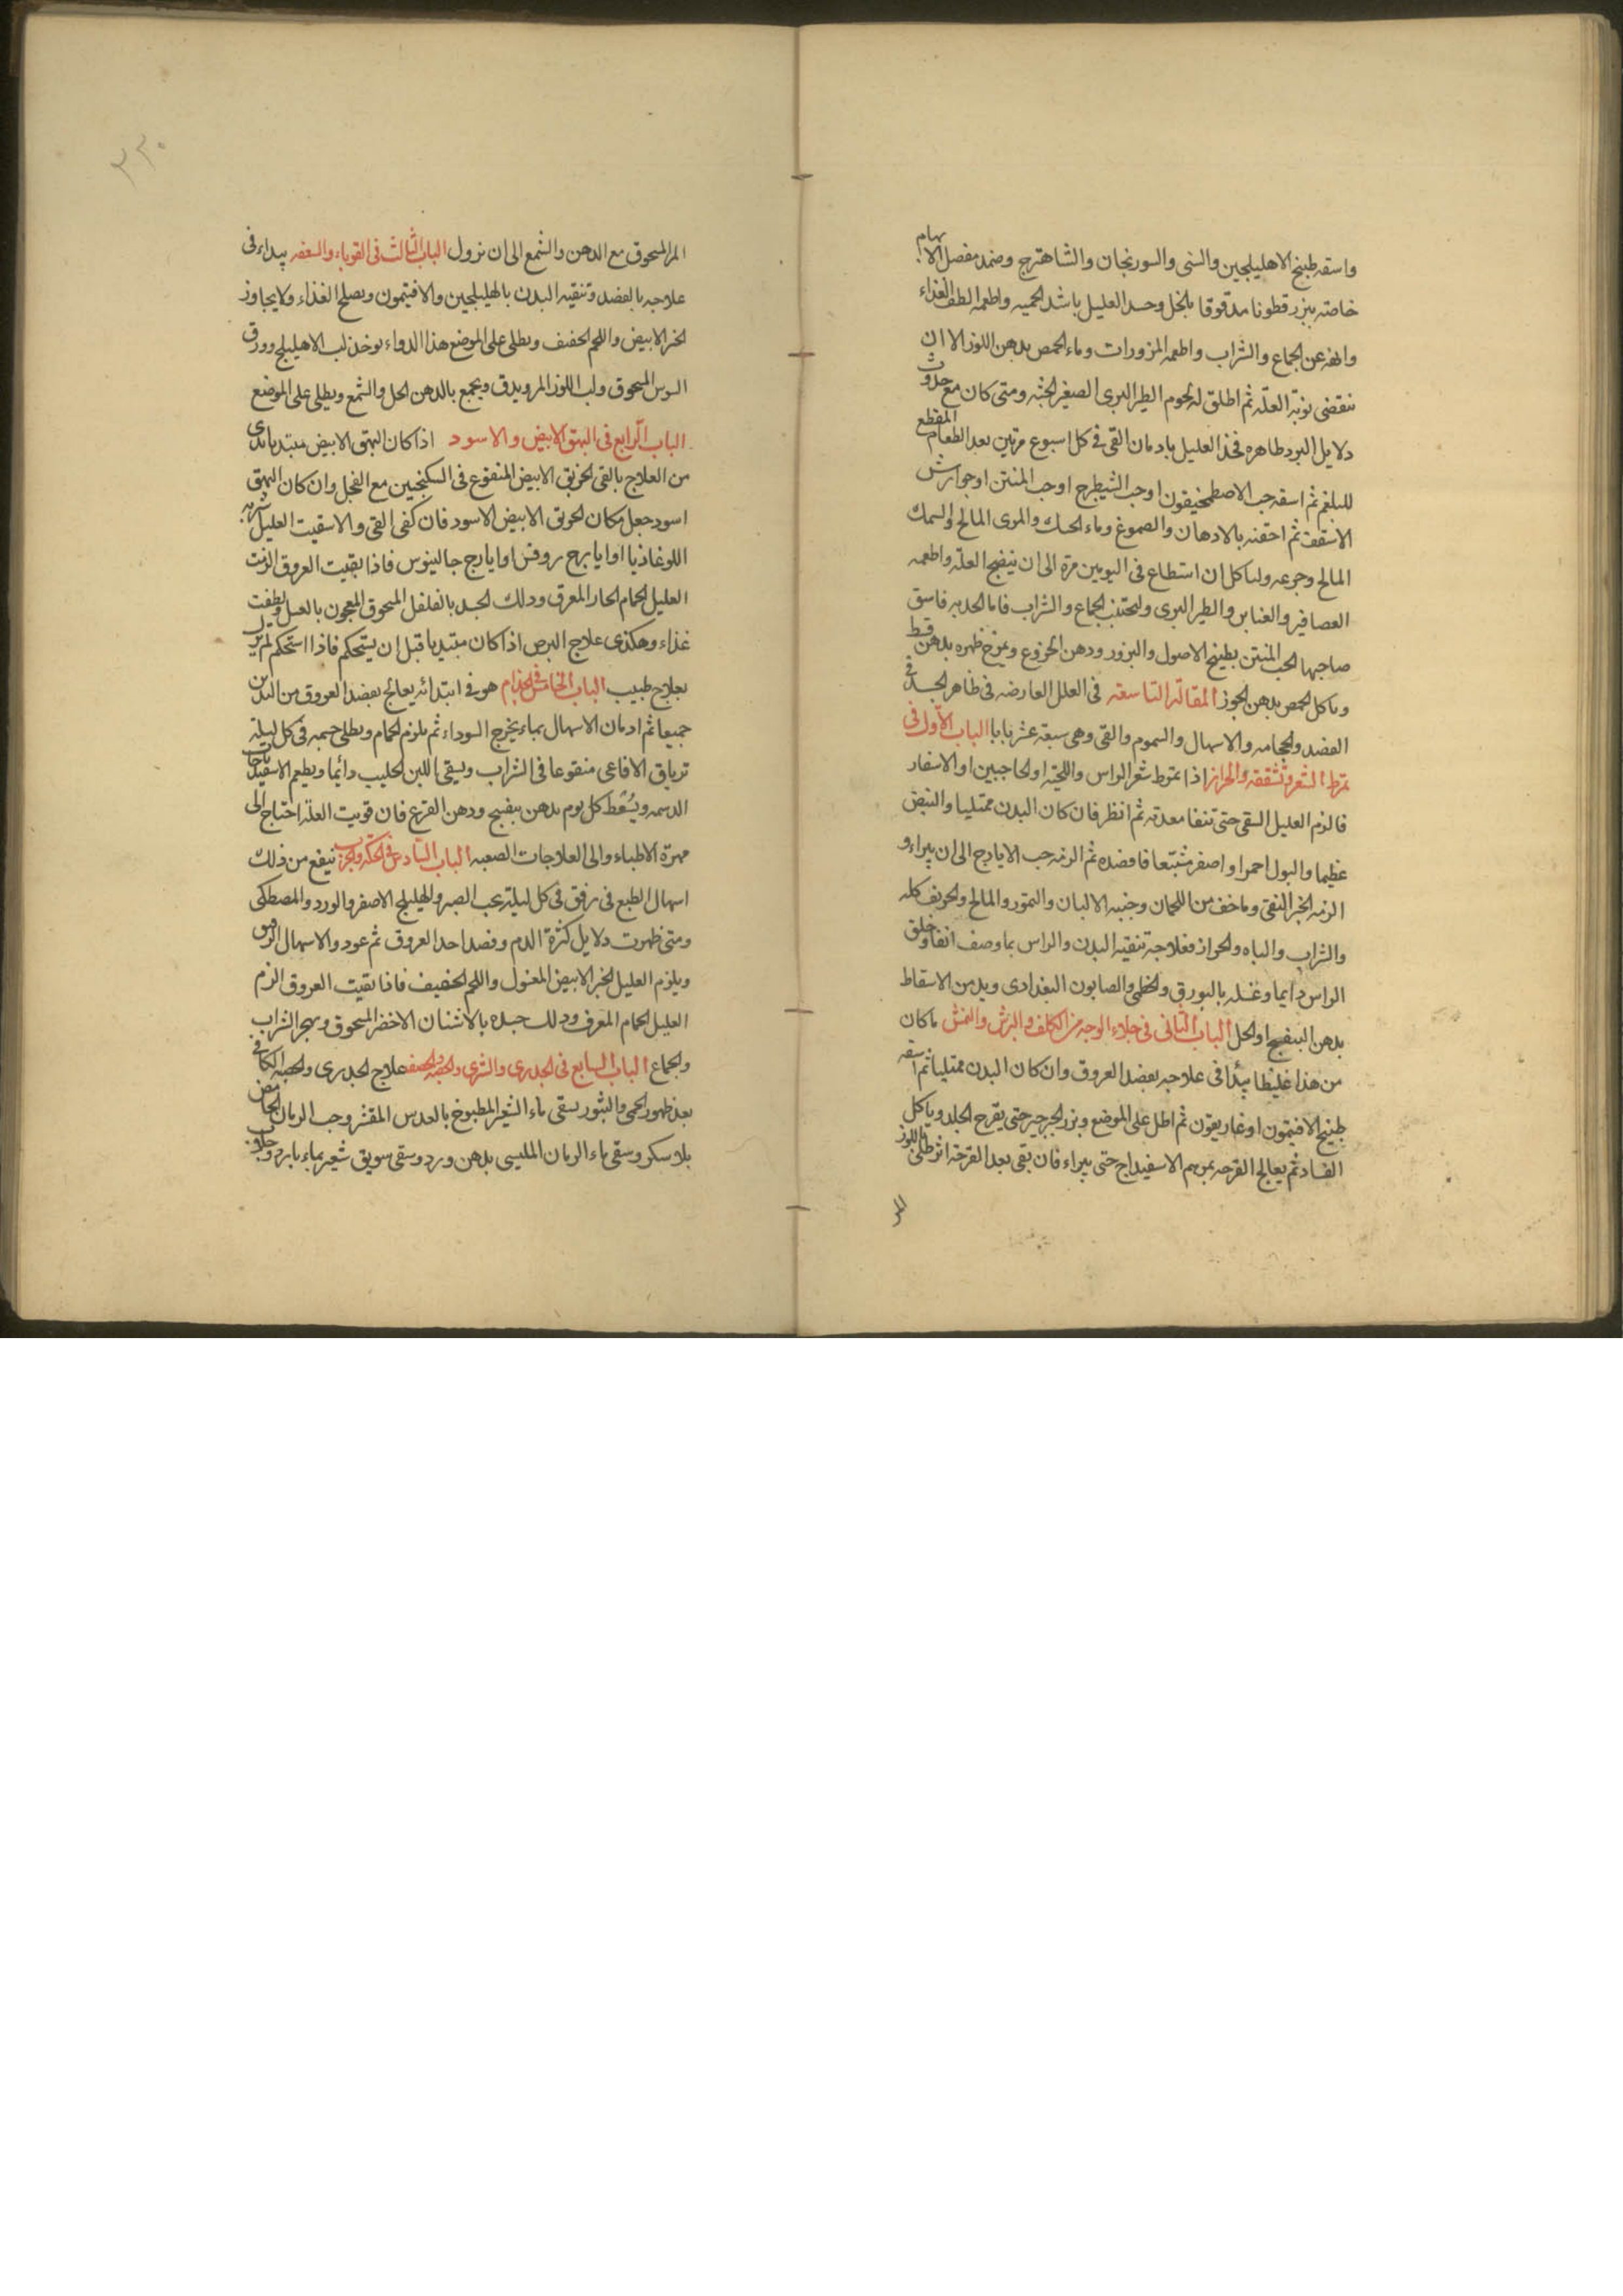 واسقه طبيخ الاهليلجين والسنى والسورنجان والشاهترج وضمد مفصل الابهام
خاصته ببزر قطونا مدقوقا بالخل وحد العليل باشد الحميه واطعمه الطف الغذاء
وانهه عن الجماع والشراب واطعمه المزورات وماء الحمص بدهن اللوز الا ان
تنقضى نوبة العلّه ثم اطلق له لحوم الطير البرى الصغير الجثه ومتى كان مع حدوث
دلايل البرد ظاهره فخذ العليل بادمان القى فى كل اسبوع مرتين بعد الطعام المقطع
للبلغم ثم اسقه حب الاصطمخيقون او حب الشيطرج او حب المنتن او جوارش
الاسقف ثم احقنه بالادهان والصموغ وماء الحسك والمرى المالح والسمك
المالح وجرعه ولياكل ان استطاع فى اليومين مرة الى ان ينضج العلّه واطعمه
العصافير والقنابر والطير البرى وليجتنب الجماع والشراب فاما الحدبه فاسق
صاحبها الحب المنتن بطبيخ الاصول والبزور ودهن الخروع ويمرخ ظهره بدهن قسط
وياكل الحمص بدهن الجوز المقالة التاسعه فى العلل العارضه فى ظاهر الجسد فى
الفصد والحجامه والاسهال والسموم والقى وهى سبعة عشر بابا الباب الاول فى
تمرط الشعر وتشققه والحزاز اذا تمرط شعر الراس واللحية او الحاجبين او الاسفار
فالزم العليل القى حتى تنقا معدته ثم انظر فان كان البدن ممتليا والنبض
عظيما والبول احمر او اصفر مشبّعا فافصده ثم الزمه حب الايارج الى ان يبراء و
الزمه الخبز النقى وما خف من اللحمان وجنبه الالبان والتمور والمالح والحريف كله
والشراب والباه والحزاز فعلاجه تنقيه البدن والراس بما وصف انفا وحلق
الراس دايما وغسله بالبورق والخطمى والصابون البغدادى وبد من الاسقاط
بدهن البنفسج او الخل الباب الثانى فى جلاء الوجه من الكلف والبرش والنمش ما كان
من هذا غليظا يبدأ فى علاجه بفصد العروق وان كان البدن ممتليا ثم اسقه
طبيخ الافتيمون او غاريقون ثم اطل على الموضع وبزر الجرجير حتى يقرح الجلد وياكل
الفساد ثم يعالج القرحه بمرهم الاسفيداج حتى يبراء فان بقى بعد القرحة اثر طلى باللوز
المر
٢٣٠
المر المسحوق مع الدهن والشمع الى ان تزول الباب الثالث فى القوباء والسعفه يبداء فى
علاجه بالفصد وتنقيه البدن بالهليلجين والافتيمون ويصلح الغذاء ولا يجاوز
الخبز الابيض واللحم الخفيف ويطلى على الموضع هذا الدواء يوخذ لب الاهليلج وورق
السوس المسحوق ولب اللوز المر ويدق ويجمع بالدهن الخل والشمع ويطلى على الموضع
الباب الرابع فى البهق الابيض والاسود اذا كان البهق الابيض مبتديا بدى
من العلاج بالقى الخربق الابيض المنقوع فى السكنجبين مع الفجل وان كان البهق
اسود جعل مكان الخربق الابيض الاسود فان كفى القى والا سقيت العليل شربه
اللوغاذيا او ايارج روفس او ايارج جالينوس فاذا نقيت العروق الزمت
العليل الحمام الحار المعرق ودلك الجسد بالفلفل المسحوق المعجون بالعسل ولطفت
غذاء وهكذى علاج البرص اذا كان مبتديا قبل ان يستحكم فاذا استحكم لم يزل
بعلاج طبيب الباب الخامس فى الجذام هو فى ابتدائه يعالج بفصد العروق من اليدين
جميعا ثم ادمان الاسهال بماء يخرج السوداء ثم يلزم الحمام ويطلى جسمه فى كل ليلة
ترياق الافاعى منقوعا فى الشراب ويسقى اللبن الحليب دائما ويطعم الاسفيدباجات
الدسمه ويُسْعَط كل يوم بدهن بنفسج ودهن القرع فان قويت العلة احتاج الى
مهرة الاطباء والى العلاجات الصعبه الباب السادس فى الحكة والجرب ينفع من ذلك
اسهال الطبع فى رفق فى كل ليلة بحب الصبر والهليلج الاصفر والورد والمصطكى
ومتى ظهرت دلايل كثرة الدم وفصد احد العروق ثم عود والاسهال الرفيق
ويلزم العليل الخبز الابيض المغسول واللحم الخفيف فاذا نقيت العروق الزم
العليل الحمام المعرف ودلك جسده بالاشنان الاخضر المسحوق وهجر الشراب
والجماع الباب السابع فى الجدرى والشرى والحصبه والحصف علاج الجدرى والحصبه الكافى
بعد ظهور الحمى والبثور يسقى ماء الشعير المطبوخ بالعدس المقشر وحب الرمان الحامض
بلا سكر وسقى ماء الرمان المليسى بدهن ورد وسقى سويق شعير بماء بارد وجلاب